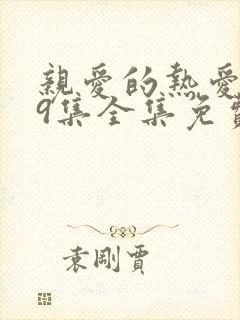 親愛的熱愛
9集全集免費
袁剛賈